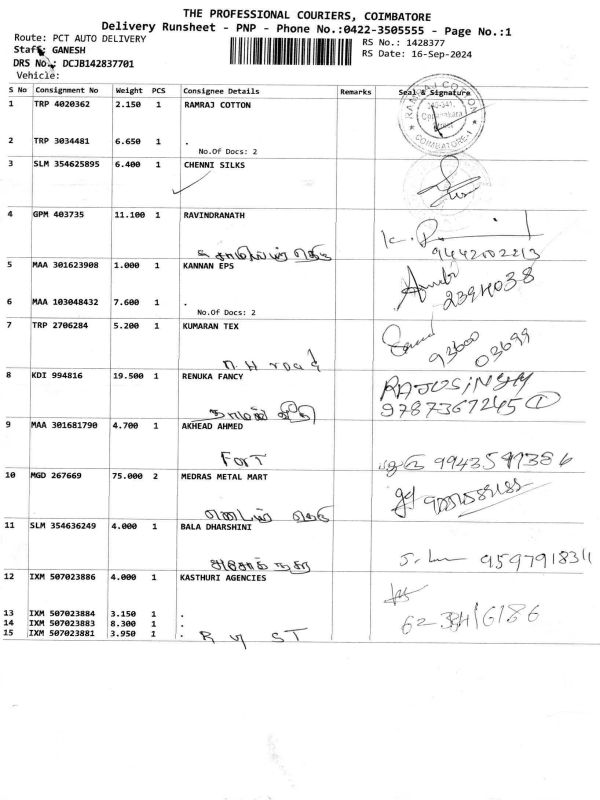 THE PROFESSIONAL COURIERS, COIMBATORE
Delivery Runsheet - PNP - Phone No.:0422-3505555 - Page No.:1
Route: PCT AUTO DELIVERY
RS No.: 1428377
Staff: GANESH
RS Date: 16-Sep-2024
DRS No.: DCJB142837701
Vehicle:
S No Consignment No Weight PCS Consignee Details Remarks Seal & Signature
1 TRP 4020362 2.150 1 RAMRAJ COTTON
RAMRAJ COTTON
COIMBATORE-1
2 TRP 3034481 6.650 1 .
No.Of Docs: 2
3 SLM 354625895 6.400 1 CHENNI SILKS
4 GPM 403735 11.100 1 RAVINDRANATH
9442102213
5 MAA 301623908 1.000 1 KANNAN EPS
2394038
6 MAA 103048432 7.600 1 .
No.Of Docs: 2
7 TRP 2706284 5.200 1 KUMARAN TEX
93600
03699
N H road
8 KDI 994816 19.500 1 RENUKA FANCY
RAJUSINGH
9787367245 1
9 MAA 301681790 4.700 1 AKHEAD AHMED
Fort
10 MGD 267669 75.000 2 MEDRAS METAL MART
11 SLM 354636249 4.000 1 BALA DHARSHINI
9597918311
12 IXM 507023886 4.000 1 KASTHURI AGENCIES
13 IXM 507023884 3.150 1 .
14 IXM 507023883 8.300 1 .
15 IXM 507023881 3.950 1 .
ST